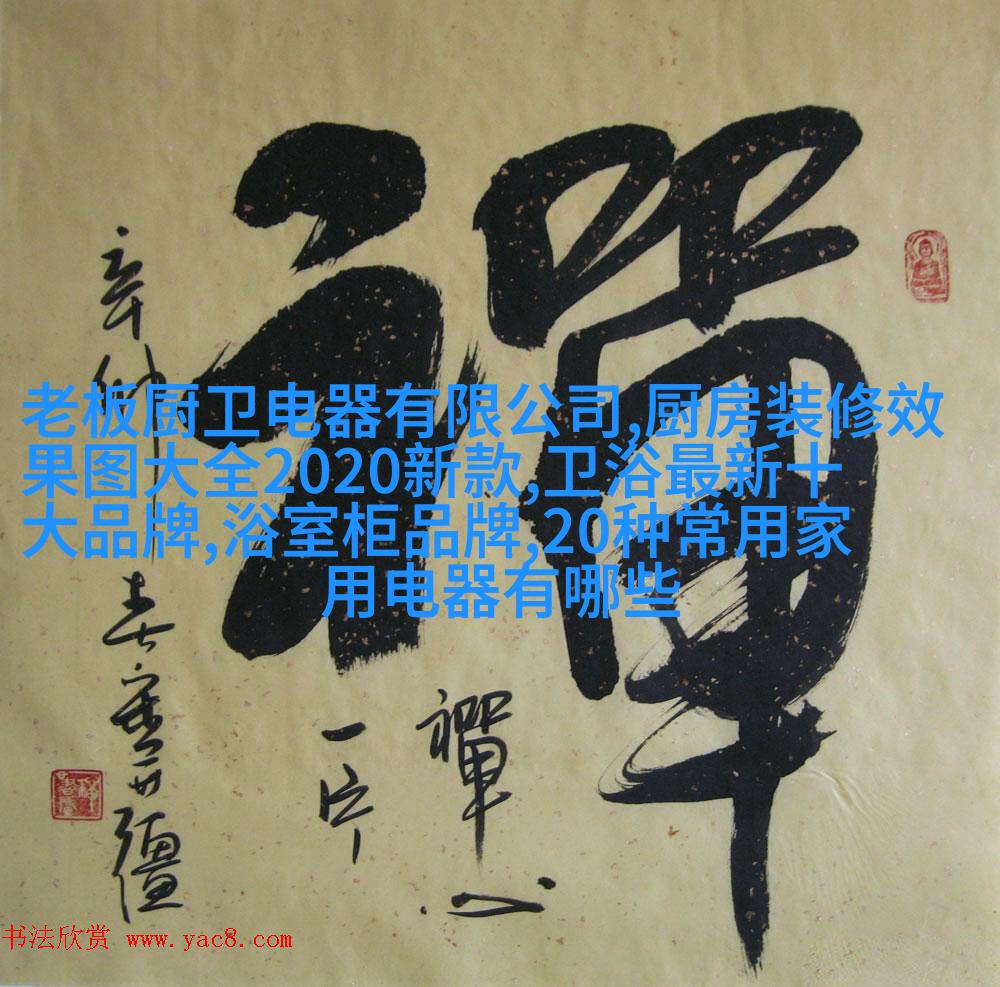 禪
禪心
一片
老板厨卫电器有限公司,厨房装修效
果图大全2020新款,卫浴最新十
大品牌,浴室柜品牌,20种常用家
用电器有哪些
书法欣赏 www.yac8.com